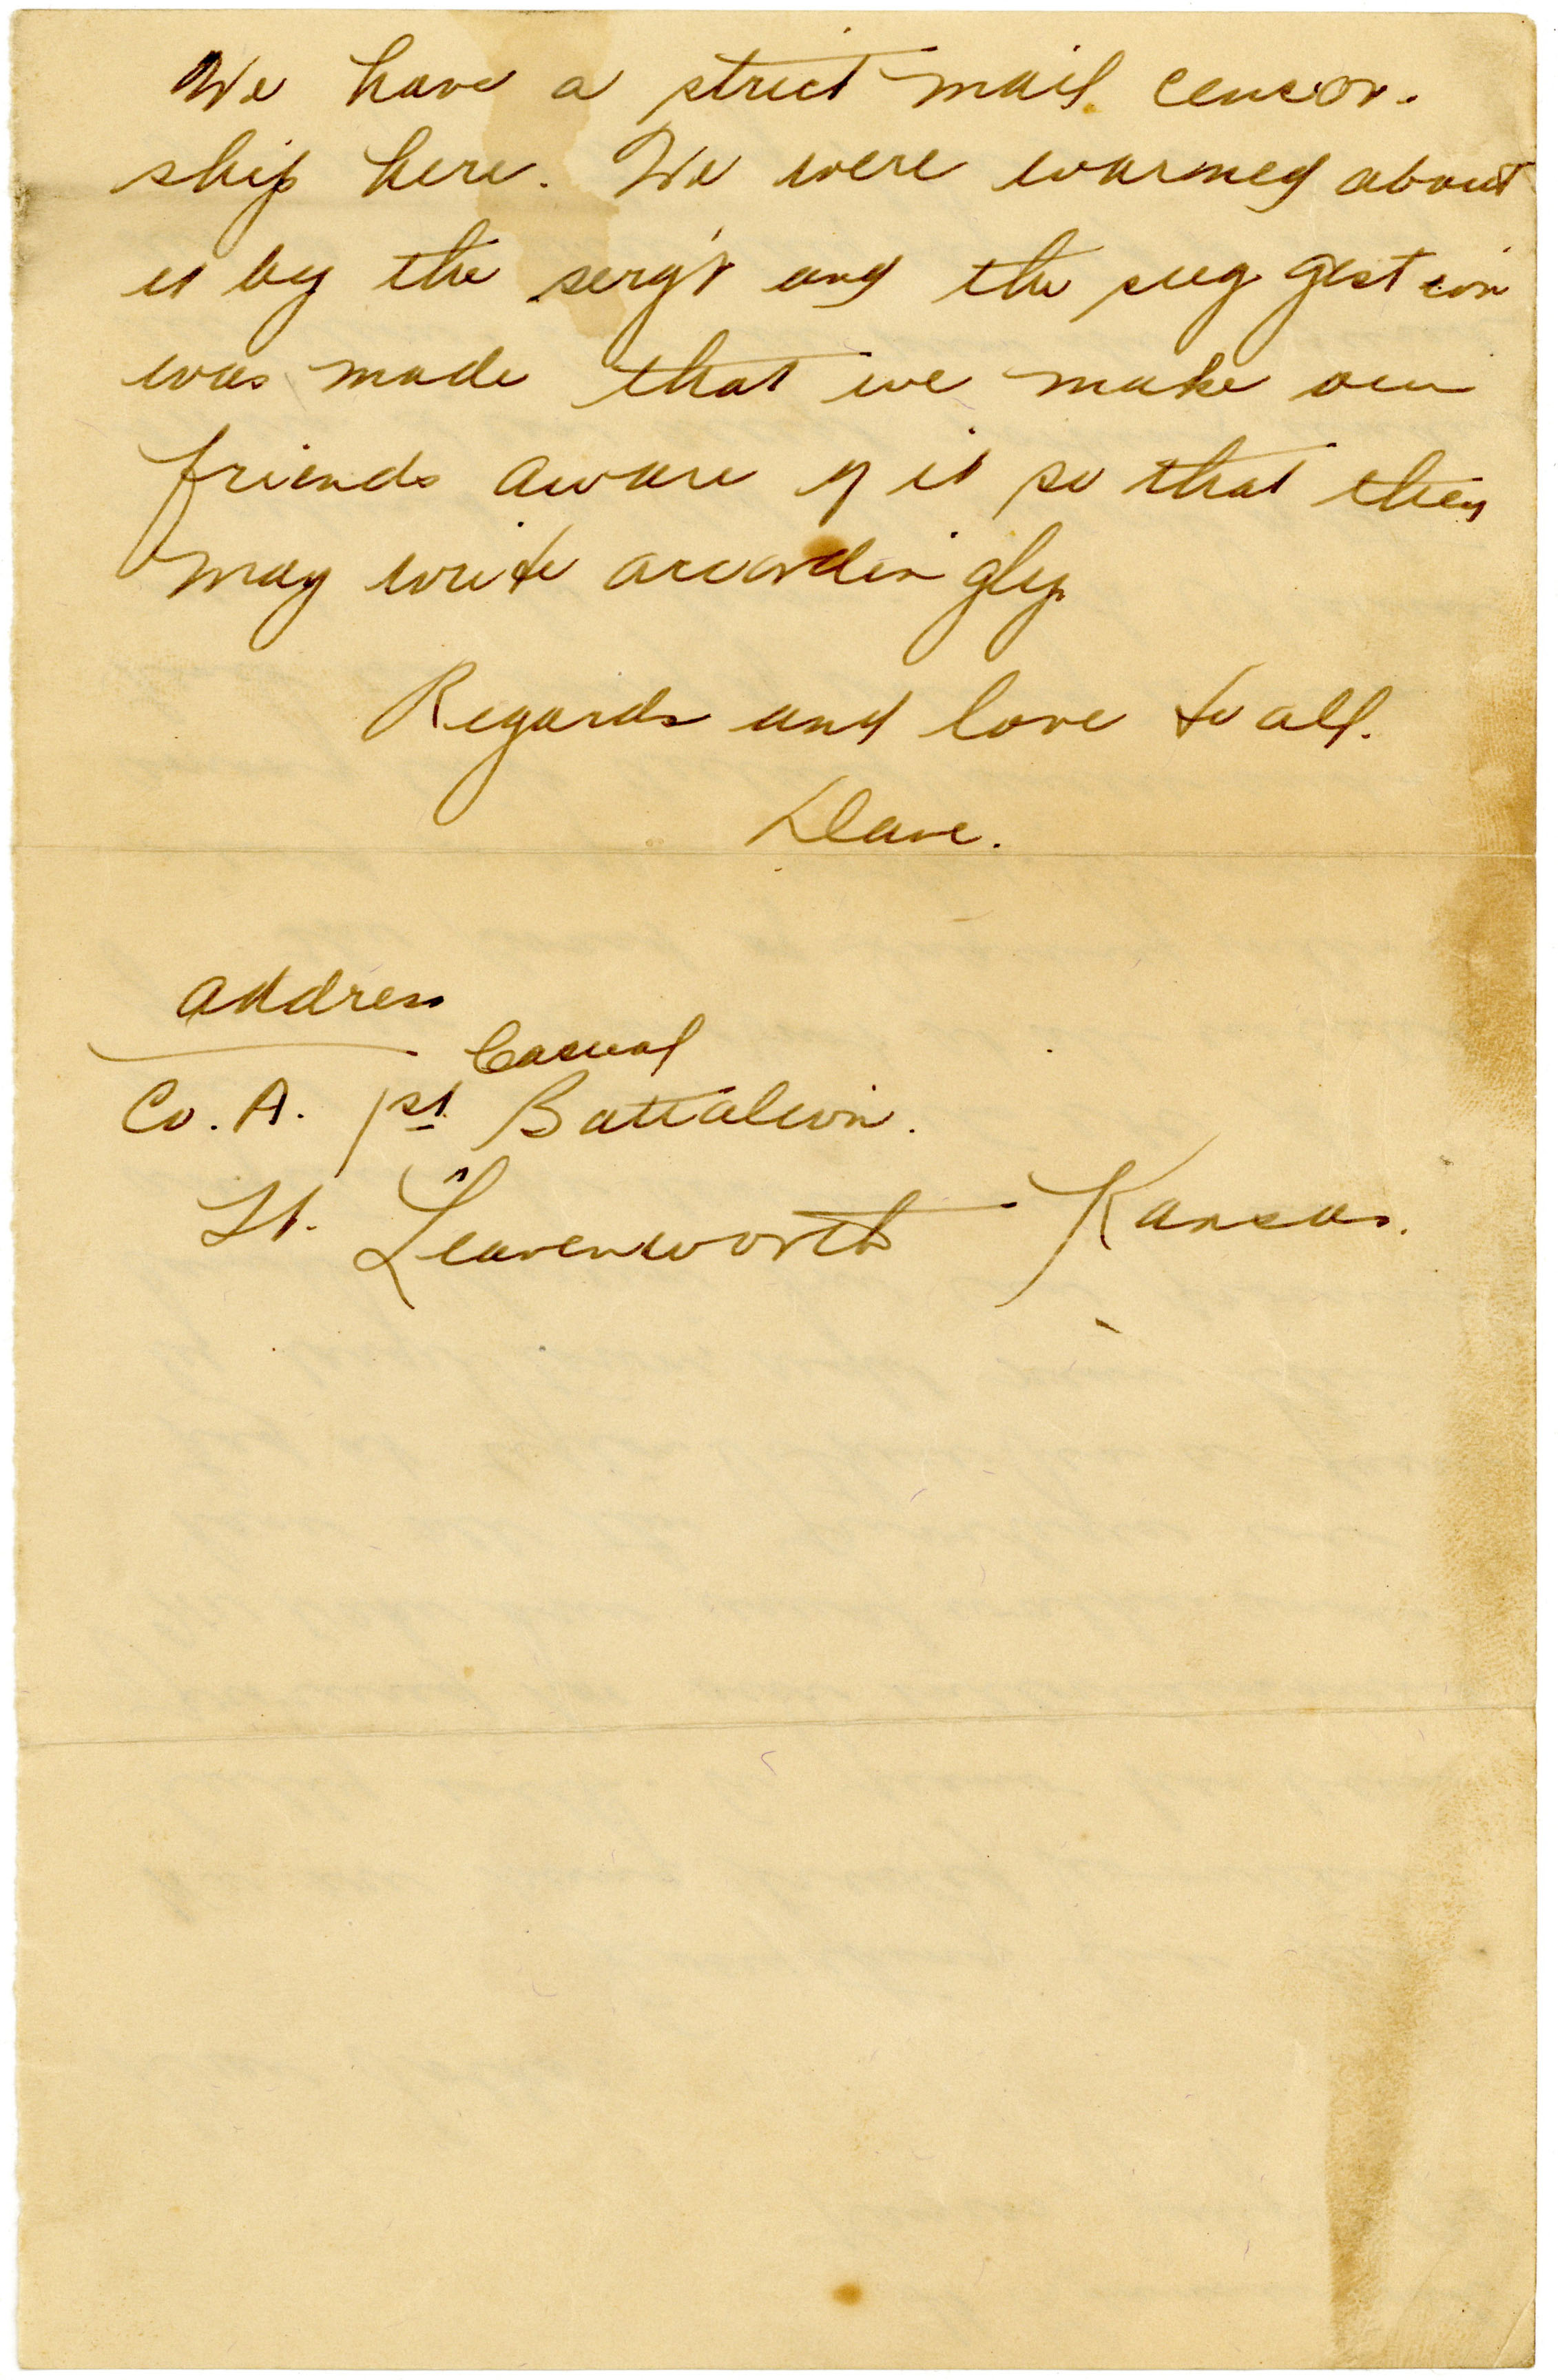 We have a strict mail censor-
ship here. We were warned about
it by the serg't and the suggestion
was made that we make our
friends aware of it so that they
may write accordingly.
Regards and love to all.
Dave.
Address
Casual
Co. A. 1st Battalion.
Ft. Leavenworth Kansas.